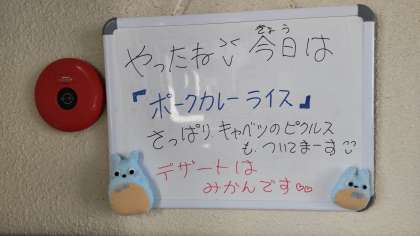 やったね 今日は
きょう
『ポークカレーライス』
さっぱり、キャベツのピクルス
も、ついてまーす
デザートは
みかんです♡♡